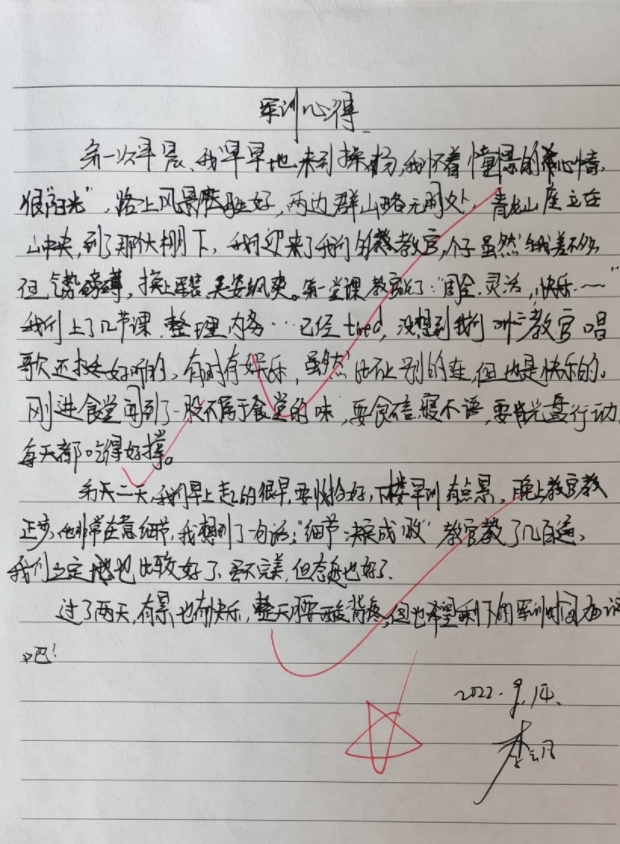 军训心得
第一次早晨、我早早地来到操场,我怀着憧憬的心情,
很"阳光",路上风景好,两边群山略无阙处,青龙山座立在
山中央,到了那大棚下,我们迎来了我们的教官,个子虽然
但气势磅礴,换上军装英姿飒爽。第一堂课教官说了:"周全.灵活,快乐·~"
我们上了几节课,整理内务···已经tired,没想到我们教官唱
歌还挺好听的、有时有娱乐,虽然比不上别的连,但也是快乐的。
刚进食堂闻到了一股不属于食堂的味,要食不言寝不语,要光盘行动,
每天都吃得好撑。
第天二天,我们早上起的很早,要收拾好,下楼早训有点累,晚上教官教
正步,他非常在意细节,我想到了一句话:"细节决定成败"教官教了几百遍、
我们也比较好了、虽不完美,但态度也好了.
过了两天,有累也有快乐,整天腰酸背疼,但也希望剩下的军训时间
吧!
2022.9.14.
李